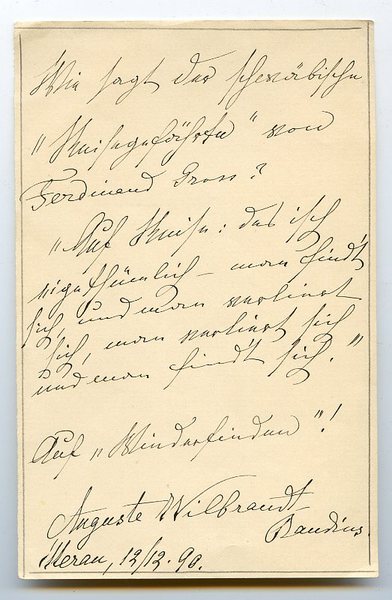 Wie sagt der schwäbische
„Reisegefährte“ von
Ferdinand Gross?
„Auf Reise: das isch
eigethümlich – man findt
sich, und man verliert
sich, man verliert sich
und man find't sich.“
Auf „Wiederfinden“!
Auguste Wilbrandt
Baudius.
Meran, 12/12. 90.